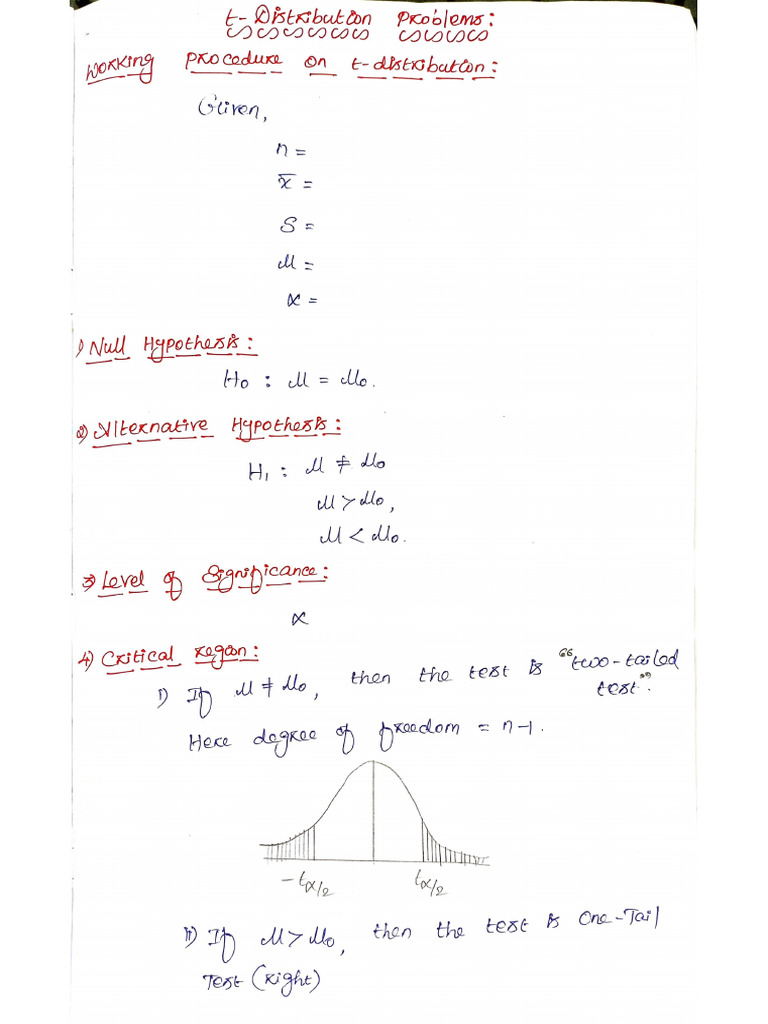 t-Distribution Problems:
Working Procedure on t-distribution:
Given,
n =
x̄ =
S =
μ =
α =
1) Null Hypothesis:
H₀ : μ = μ₀.
2) Alternative Hypothesis:
H₁ : μ ≠ μ₀
μ > μ₀,
μ < μ₀.
3) Level of Significance:
α
4) Critical Region:
i) If μ ≠ μ₀, then the test is "two-tailed
test".
Here degree of freedom = n-1.
-t_α/2 t_α/2
ii) If μ > μ₀, then the test is One-Tail
Test (right)